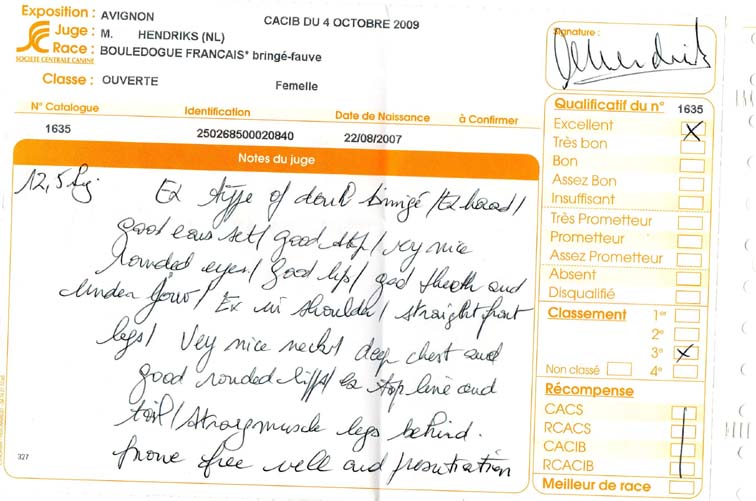 Exposition : AVIGNON CACIB DU 4 OCTOBRE 2009
Juge : M. HENDRIKS (NL)
Race : BOULEDOGUE FRANCAIS* bringé-fauve
SOCIETE CENTRALE CANINE
Classe : OUVERTE Femelle
N° Catalogue Identification Date de Naissance à Confirmer
1635 250268500020840 22/08/2007
Notes du juge
12,5 kg
Ex type of dark bringé / Ex head /
good ears set / good stop / vey nice
rounded eyes / good lips / god theeth and
under jouw / Ex in shoulder / straight front
legs / Vey nice neck / deep chest and
good rounded ribs / Ex top line and
tail / strong muscle legs behind.
move free well and presentration
327
Signature :
Qualificatif du n° 1635
Excellent X
Très bon
Bon
Assez Bon
Insuffisant
Très Prometteur
Prometteur
Assez Prometteur
Absent
Disqualifié
Classement 1er
2e
3e X
Non classé 4e
Récompense
CACS
RCACS
CACIB
RCACIB
Meilleur de race